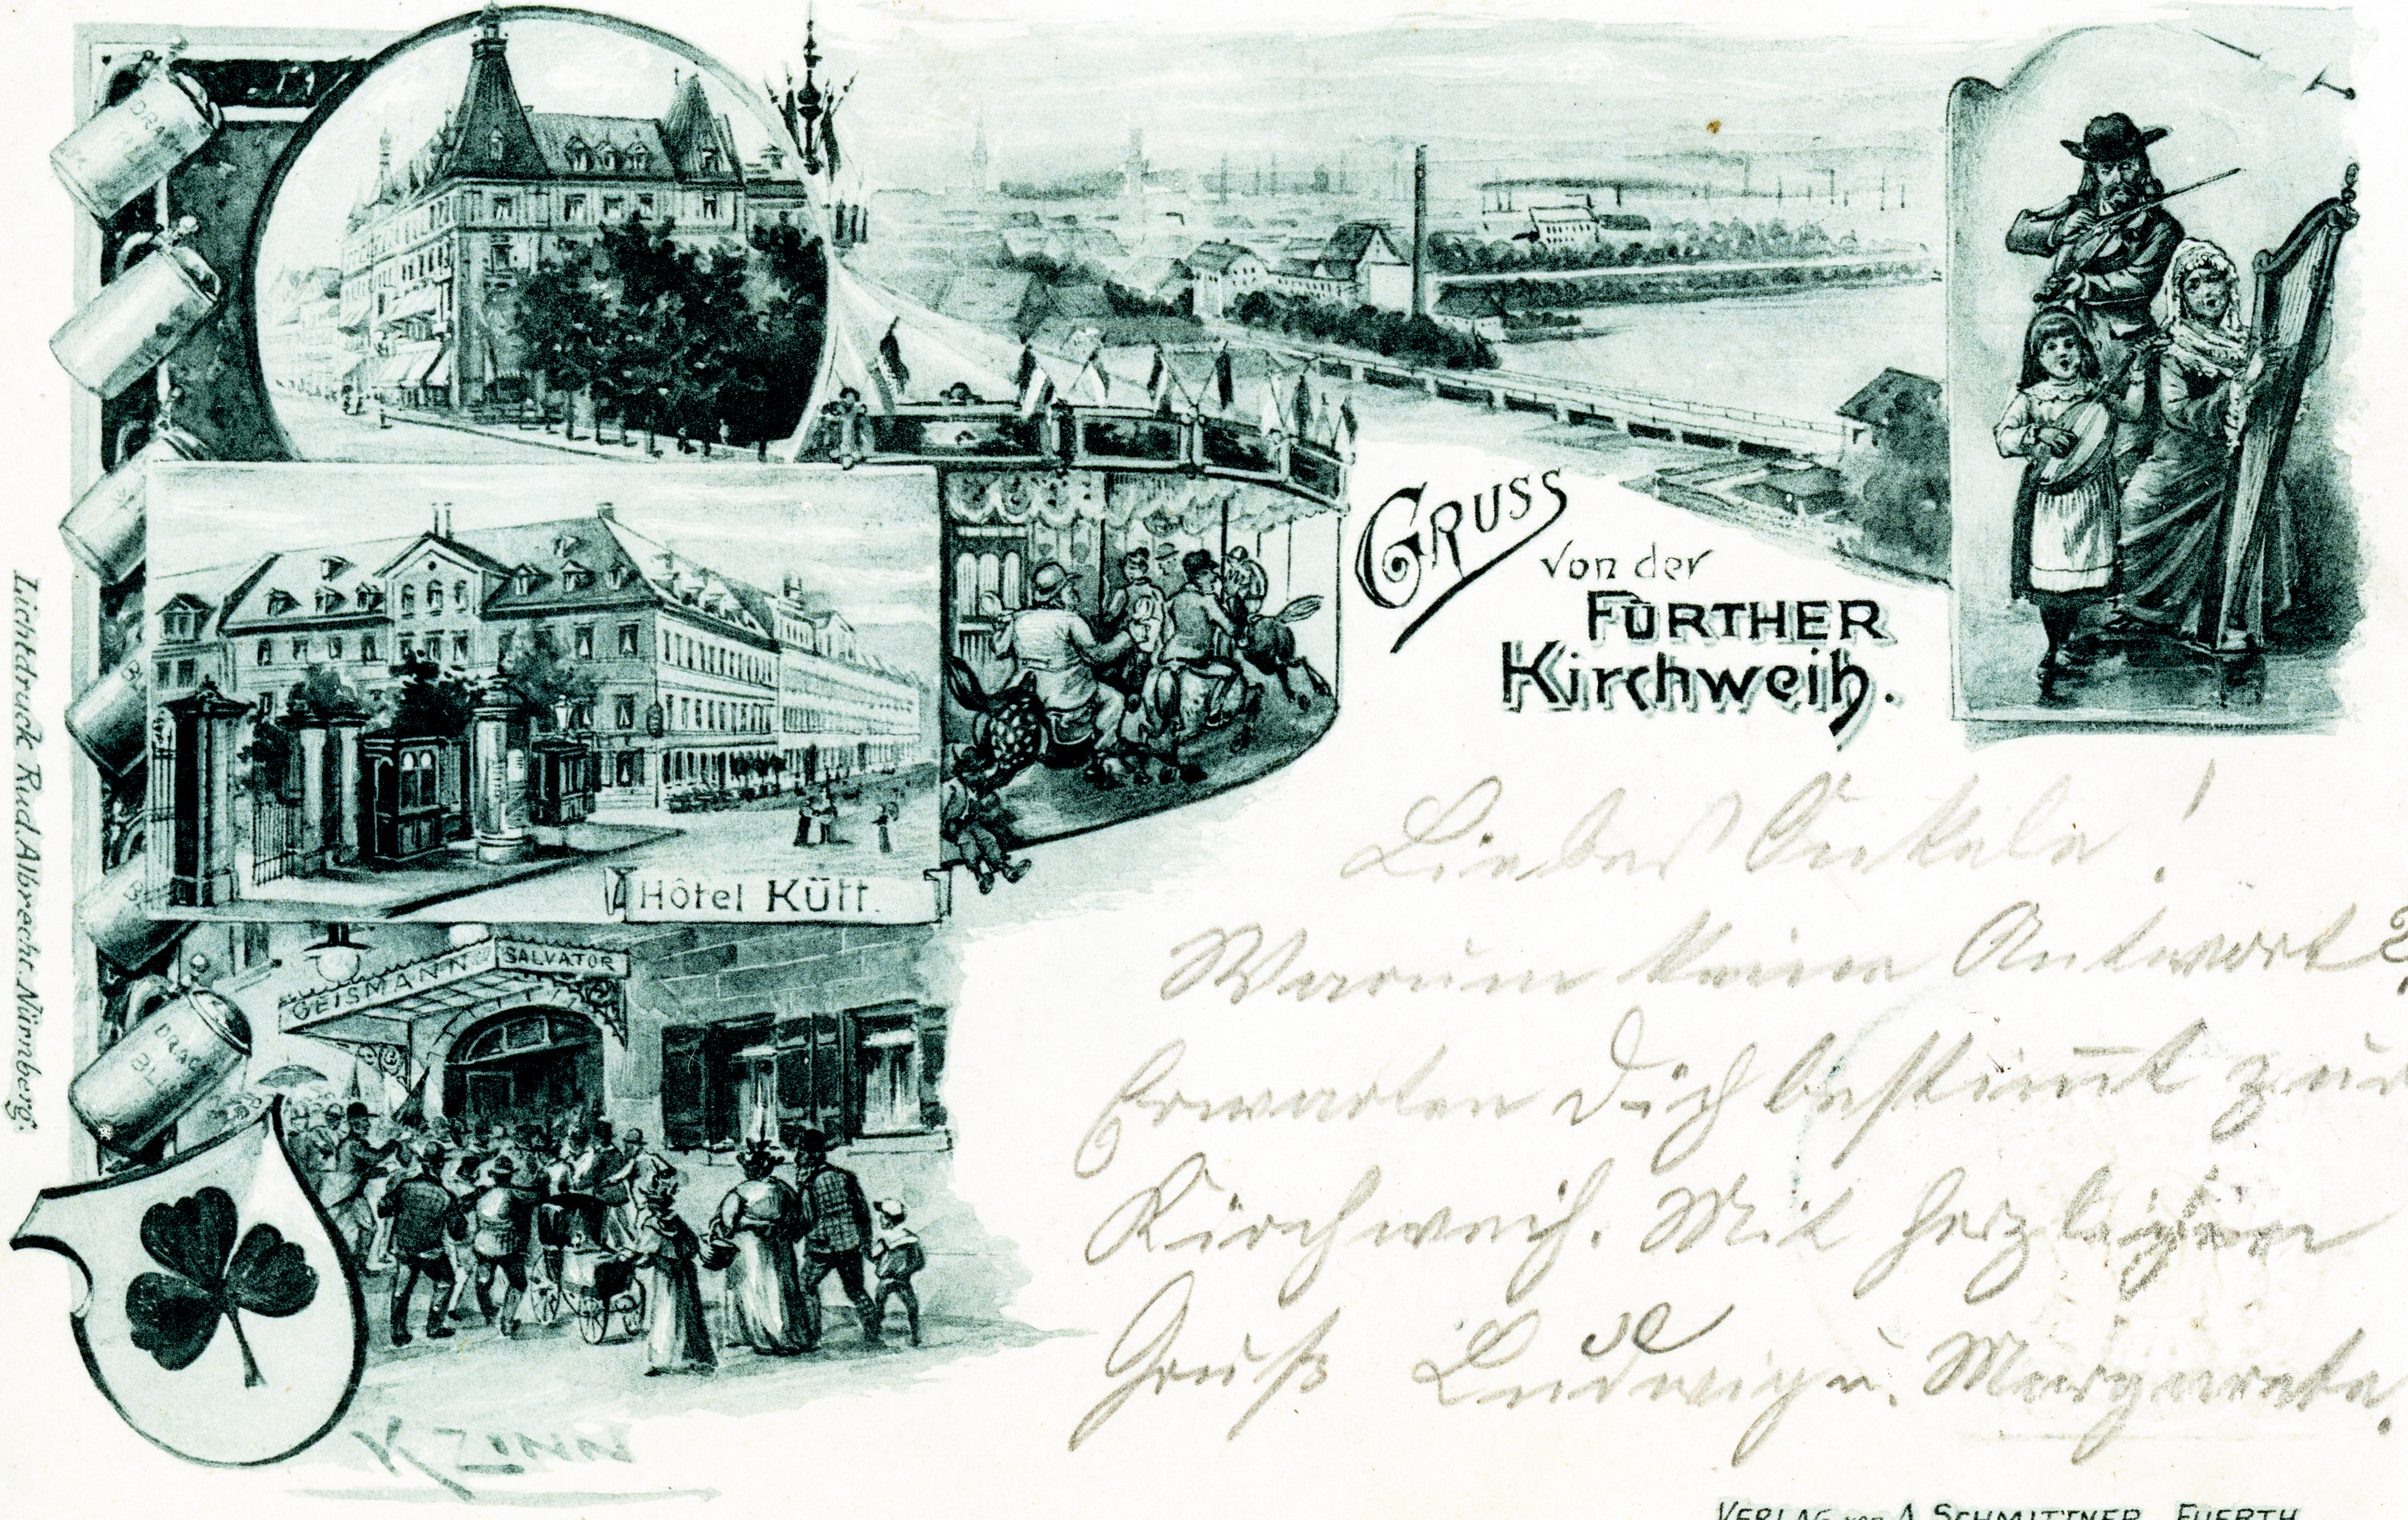 GRUSS
von der
FÜRTHER
Kirchweih.
Hôtel Kütt.
GEISMANN
SALVATOR
DRAC
BL
Lichtdruck Rud. Albrecht. Nürnberg.
Liebes
Warum keine Antwort?
Erwarten Dich bestimt zur
Kirchweih. Mit herzlichem
Gruß Ludwig u. Margareta.
VERLAG von A. SCHMITTNER, FUERTH